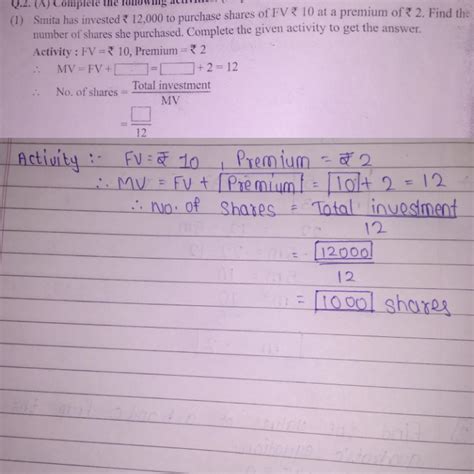 Q.2. (A) Complete the following
(1) Smita has invested ₹ 12,000 to purchase shares of FV ₹ 10 at a premium of ₹ 2. Find the
number of shares she purchased. Complete the given activity to get the answer.
Activity : FV = ₹ 10, Premium = ₹ 2
∴ MV = FV + □ = □ + 2 = 12
∴ No. of shares = Total investment / MV
= □ / 12
Activity :- FV = ₹ 10 , Premium = ₹ 2
∴ MV = FV + Premium = 10 + 2 = 12
∴ No. of shares = Total investment
12
= 12000
12
= 1000 shares